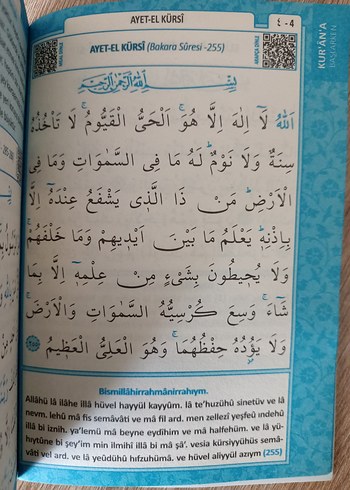 AYET-EL KÜRSÎ
٤ - 4
KUR'ÂN'A
AYET-EL KÜRSÎ (Bakara Sûresi -255)
بِسْمِ اللّٰهِ الرَّحْمٰنِ الرَّح۪يمِ
اَللّٰهُ لَٓا اِلٰهَ اِلَّا هُوَۚ اَلْحَيُّ الْقَيُّومُۚ لَا تَأْخُذُهُ
سِنَةٌ وَلَا نَوْمٌۜ لَهُ مَا فِي السَّمٰوَاتِ وَمَا فِي
الْاَرْضِۜ مَنْ ذَا الَّذ۪ي يَشْفَعُ عِنْدَهُٓ اِلَّا
بِاِذْنِه۪ۜ يَعْلَمُ مَا بَيْنَ اَيْد۪يهِمْ وَمَا خَلْفَهُمْۚ
وَلَا يُح۪يطُونَ بِشَيْءٍ مِنْ عِلْمِه۪ٓ اِلَّا بِمَا
شَٓاءَۚ وَسِعَ كُرْسِيُّهُ السَّمٰوَاتِ وَالْاَرْضَۚ
وَلَا يَؤُ۫دُهُ حِفْظُهُمَاۚ وَهُوَ الْعَلِيُّ الْعَظ۪يمُ
Bismillâhirrahmânirrahıym.
Allâhü lâ ilâhe illâ hüvel hayyül kayyûm. lâ te'huzühû sinetüv ve lâ
nevm. lehû mâ fis semâvâti ve mâ fil ard. men zellezî yeşfeu ındehû
illâ bi iznih. ya'lemü mâ beyne eydîhim ve mâ halfehüm. ve lâ yü-
hıytûne bi şey'im min ilmihî illâ bi mâ şâ'. vesia kürsiyyühüs semâ-
vâti vel ard. ve lâ yeûdühû hıfzuhümâ. ve hüvel aliyyül azıym (255)